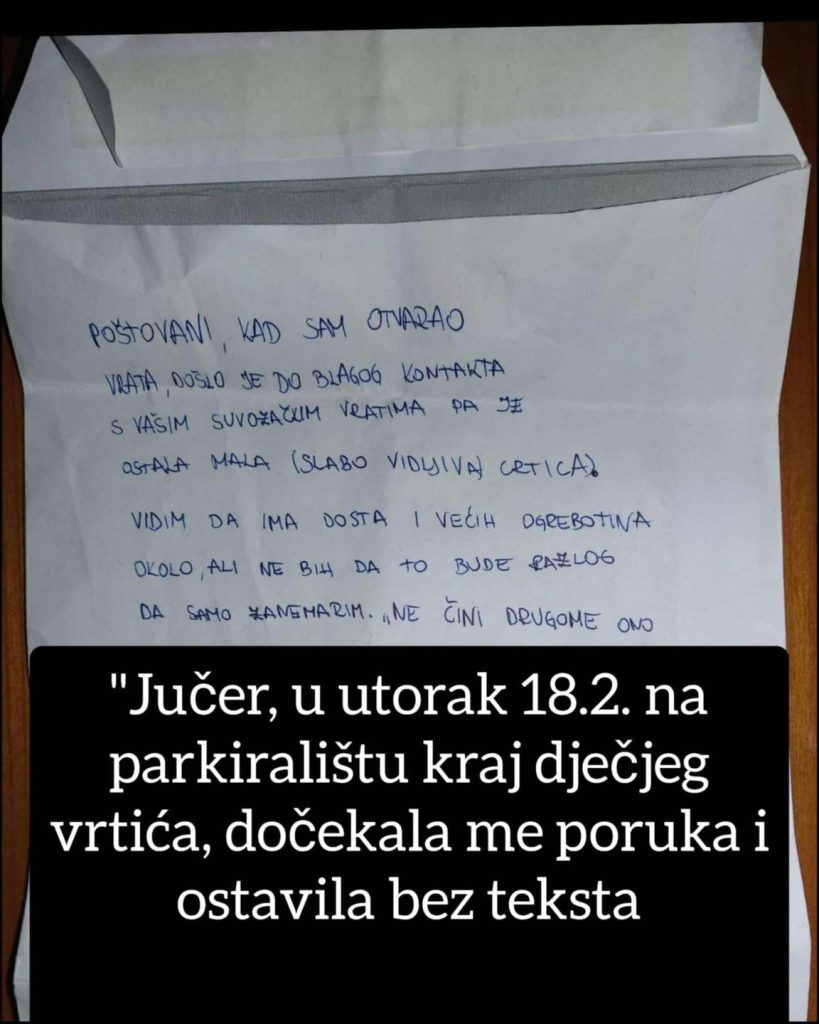 POŠTOVANI, KAD SAM OTVARAO
VRATA, DOŠLO JE DO BLAGOG KONTAKTA
S VAŠIM SUVOZAČKIM VRATIMA PA JE
OSTALA MALA (SLABO VIDLJIVA) CRTICA).
VIDIM DA IMA DOSTA I VEĆIH OGREBOTINA
OKOLO, ALI NE BIH DA TO BUDE RAZLOG
DA SAMO ZANEMARIM. „NE ČINI DRUGOME ONO
"Jučer, u utorak 18.2. na
parkiralištu kraj dječjeg
vrtića, dočekala me poruka i
ostavila bez teksta